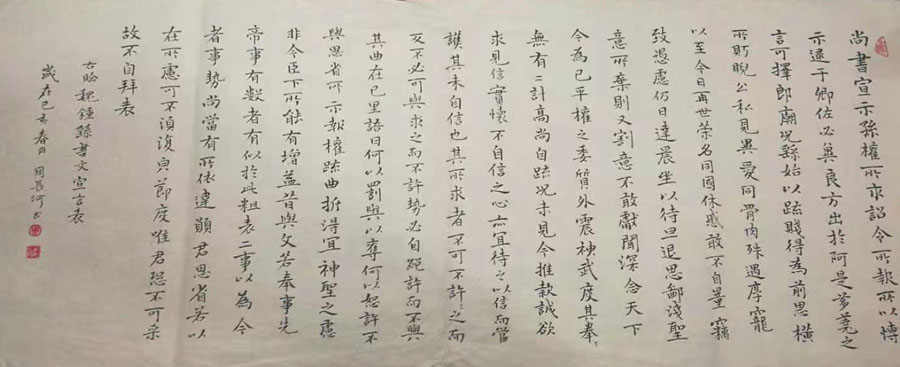 尚書宣示孫權所求詔令所報所以博
示逮于卿佐必冀良方出於阿是芻蕘之
言可擇郎廟況繇始以疏賤得為前思橫
所眄睨公私見異愛同骨肉殊遇厚寵
以至今日再世榮名同國休慼敢不自量竊
致愚慮仍日達晨坐以待旦退思鄙淺聖
意所棄則又割意不敢獻聞深念天下
今為已平權之委質外震神武度其拳々
無有二計高尚自疏況未見今推款誠欲
求見信實懷不自信之心亦宜待之以信而當
護其未自信也其所求者不可不許之而
反不必可與求之而不許勢必自絕許而不與
其曲在己里語曰何以罰與以奪何以恕許不
與思省所示報權疏曲折得宜神聖之慮
非今臣下所能有增益昔與文若奉事先
帝事有數者有似於此粗表二事以為今
者事勢尚當有所依違願君思省若以
在所慮可不須復節度唯君恐不可采
故不自拜表
右臨魏鍾繇書文宣言表
歲在己亥春月周長河書